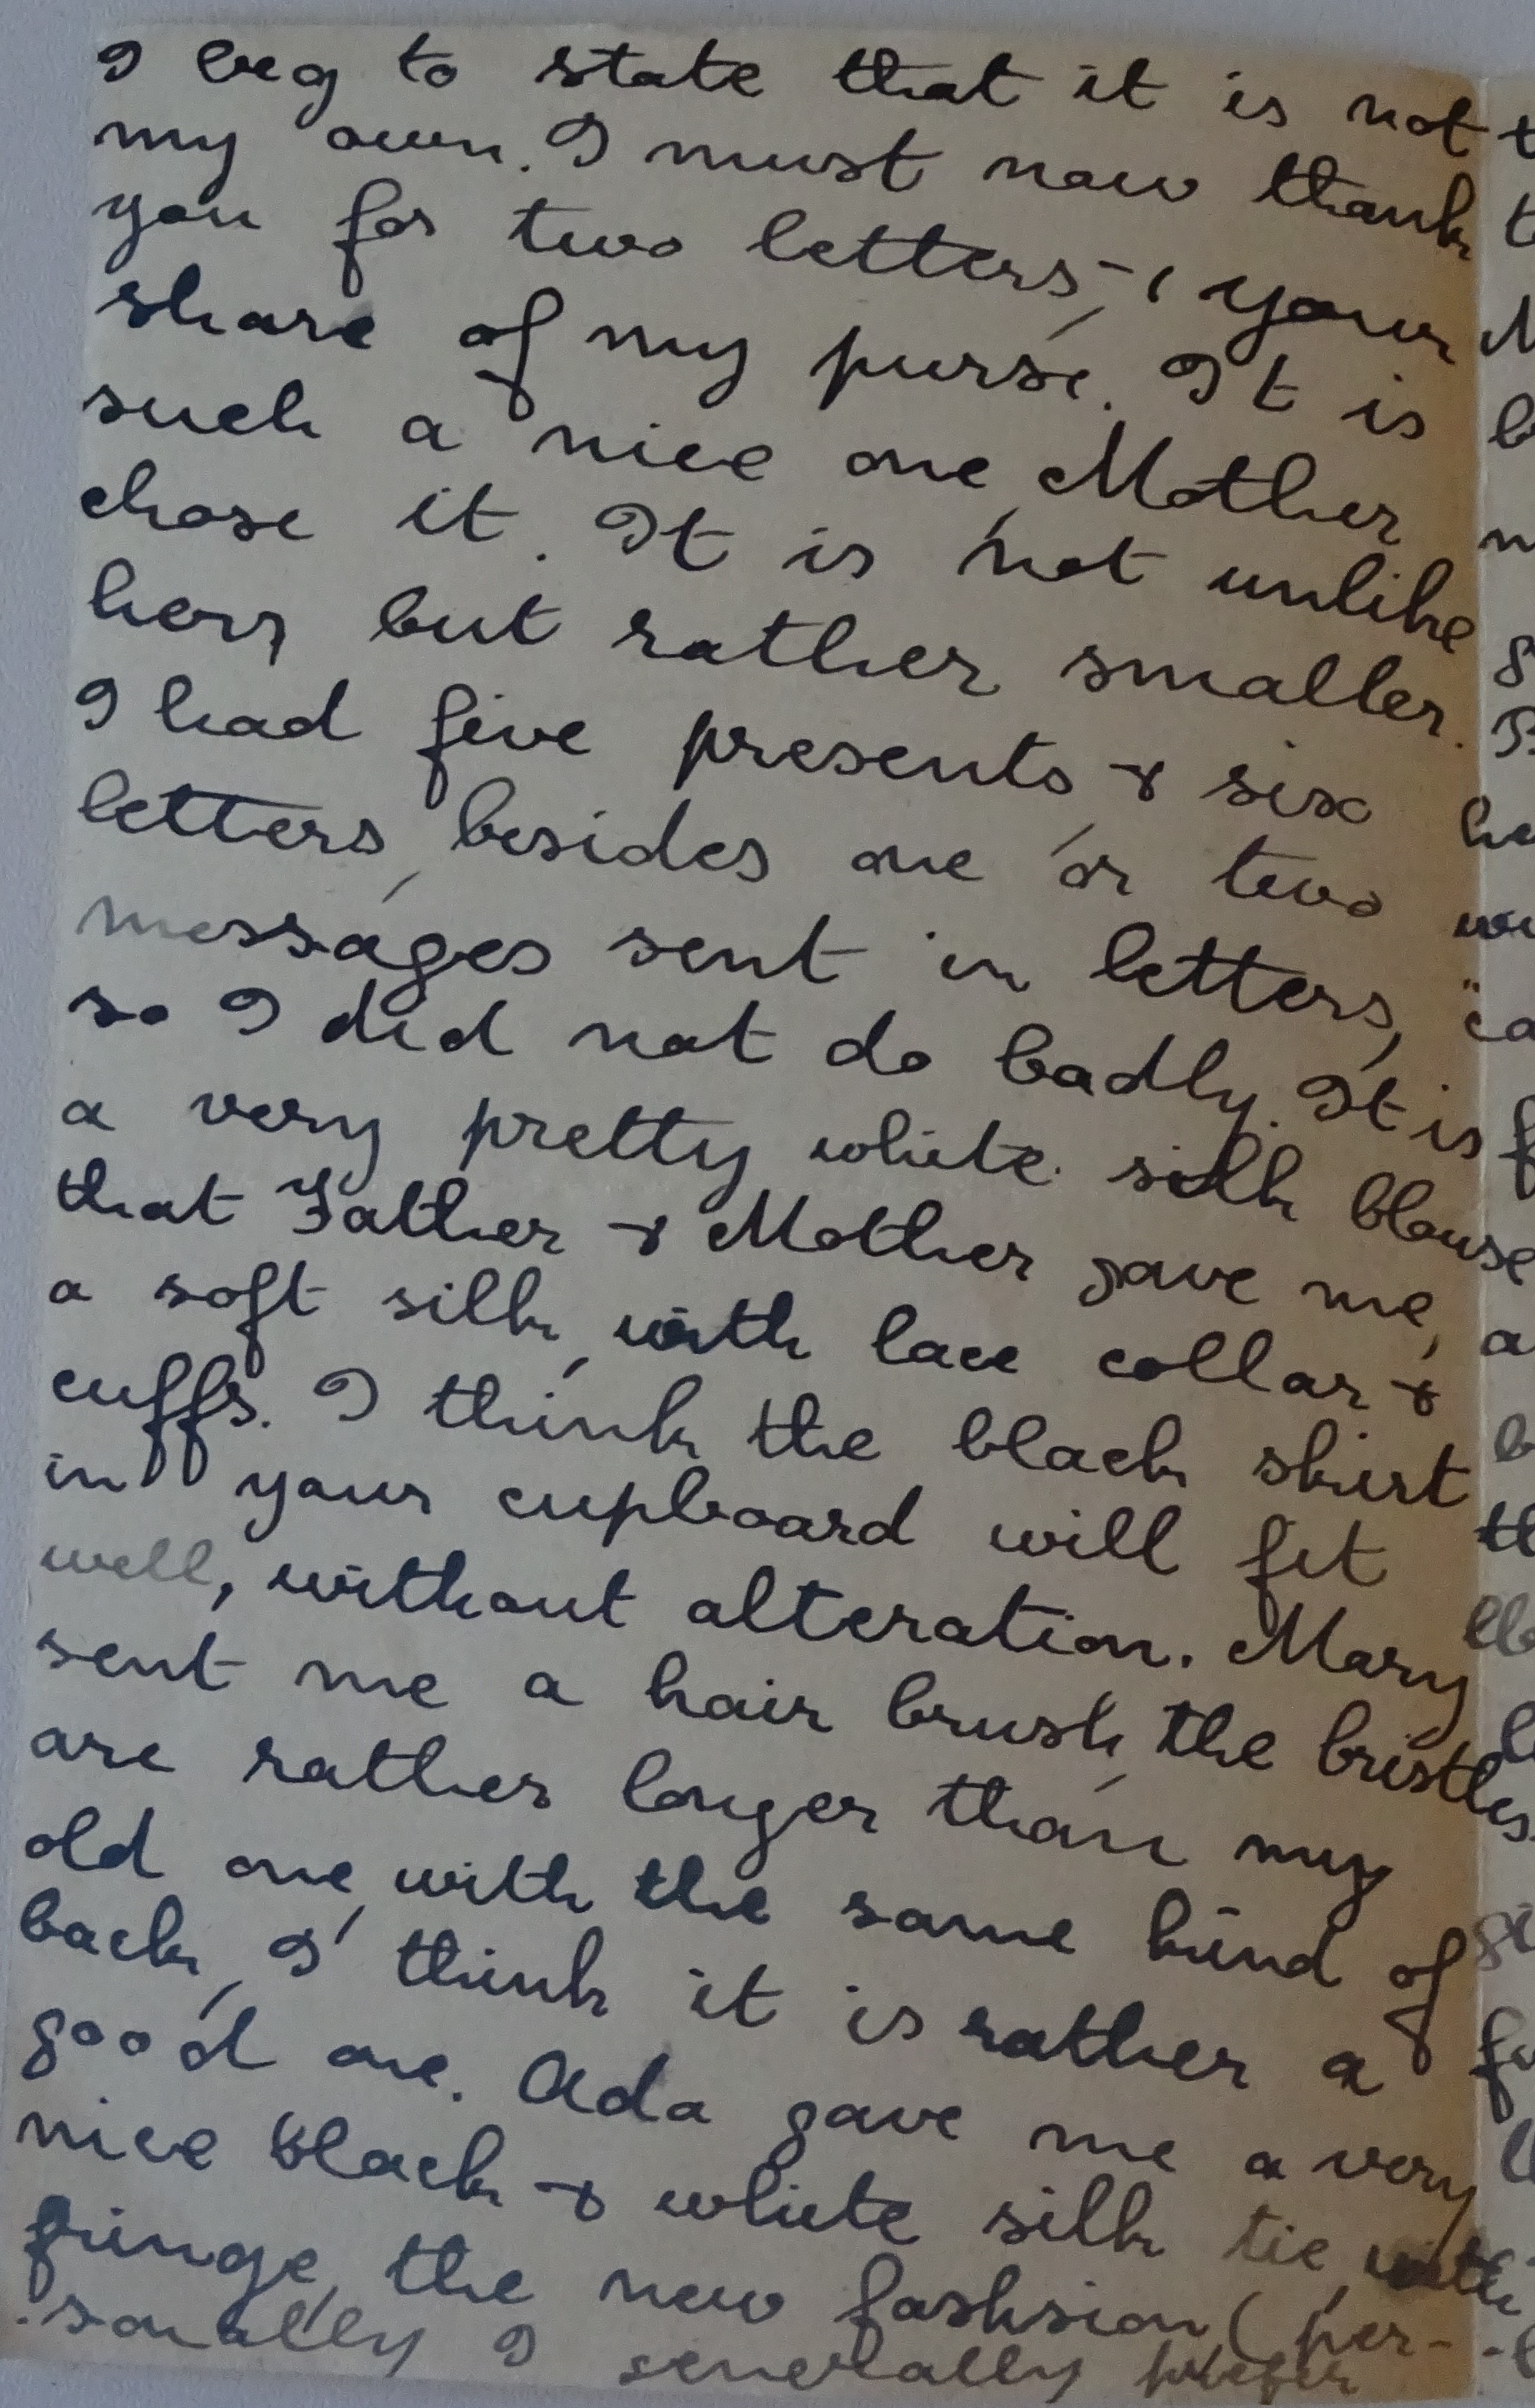 I beg to state that it is not
my own. I must now thank
you for two letters, & your
share of my purse. It is
such a nice one, Mother
chose it. It is not unlike
hers but rather smaller.
I had five presents & six
letters, besides one or two
messages sent in letters,
so I did not do badly. It is
a very pretty white silk blouse
that Father & Mother gave me,
a soft silk, with lace collar &
cuffs. I think the black skirt
in your cupboard will fit
well, without alteration. Mary
sent me a hair brush, the bristles
are rather longer than my
old one, with the same kind of
back, I think it is rather a
good one. Ada gave me a very
nice black & white silk tie, with
fringe, the new fashion (per-
-sonally I generally prefer